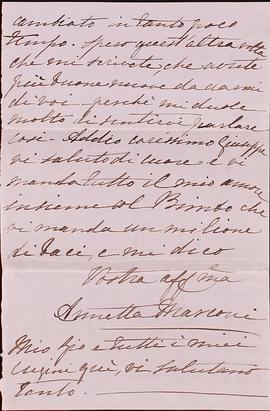 cambiato in tanto poco
tempo. Spero quest'altra volta
che mi scrivete, che avrete
più buone nuove da darmi
di voi - perchè mi duole
molto di sentirvi parlare
così - Addio carissimo Giuseppe
vi saluto di cuore e vi
mando tutto il mio amore
insieme al Bimbo che
vi manda un milione
di baci, e mi dico
Vostra aff.ma
Annetta Marconi
Mio zio e tutti i miei
cugini quì, vi salutano
tanto.